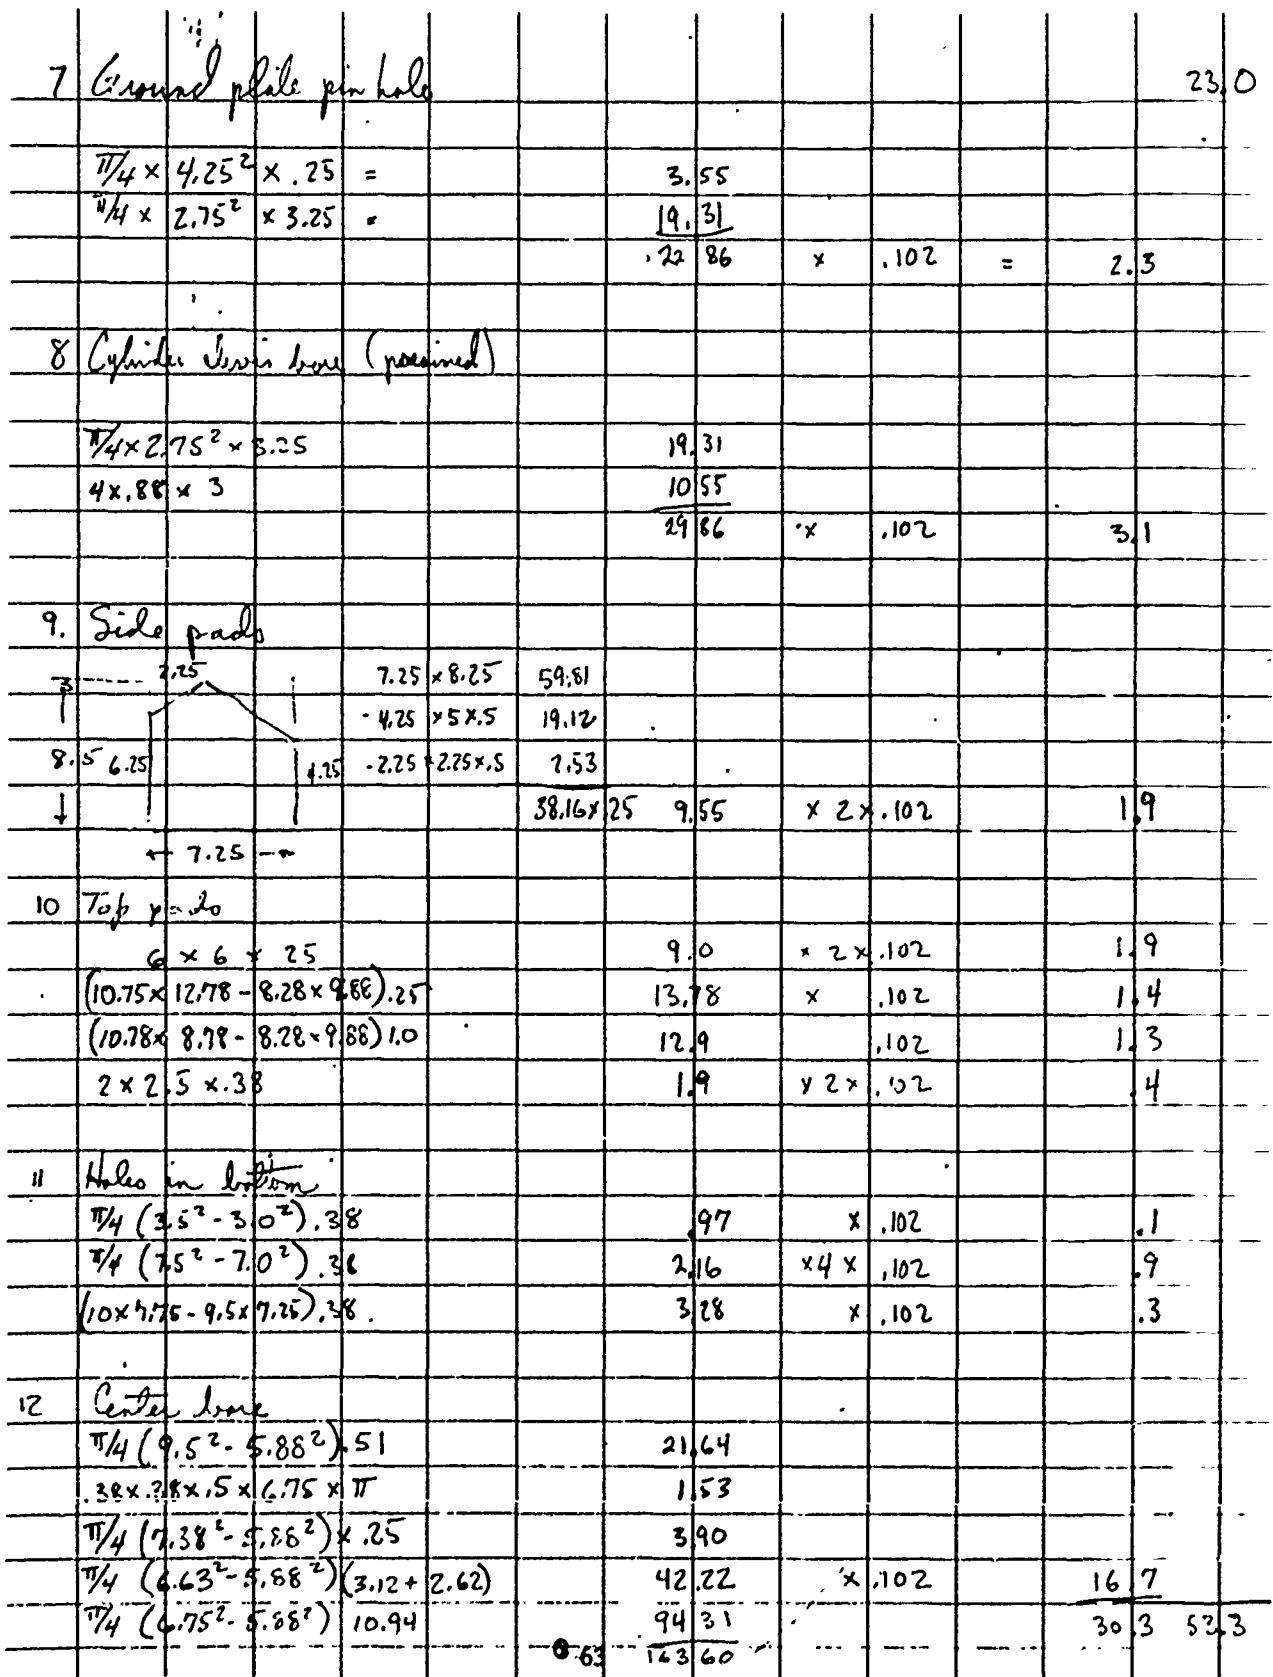 7 Ground plate pin hole 23.0
π/4 × 4.25² × .25 = 3.55
π/4 × 2.75² × 3.25 = 19.31
22 86 × .102 = 2.3
8 Cylinder bore
π/4 × 2.75² × 3.25 19.31
4 × .88 × 3 10 55
29 86 × .102 3.1
9. Side pads
3 2.25 7.25 × 8.25 59.81
- 4.25 × 5 × .5 19.12
8.5 6.25 4.25 - 2.25 × 2.25 × .5 2.53
38.16 × 25 9.55 × 2 × .102 1.9
7.25
10 Top pads
6 × 6 × 25 9.0 × 2 × .102 1.9
(10.75 × 12.78 - 8.28 × 9.88) .25 13.78 × .102 1.4
(10.78 × 8.78 - 8.28 × 9.88) 1.0 12.9 .102 1.3
2 × 2.5 × .38 1.9 × 2 × .102 .4
11 Holes in bottom
π/4 (3.5² - 3.0²) .38 .97 × .102 .1
π/4 (7.5² - 7.0²) .38 2.16 × 4 × .102 .9
(10 × 7.75 - 9.5 × 7.25) .38 3.28 × .102 .3
12 Center bore
π/4 (9.5² - 5.88²) .51 21.64
.38 × .38 × .5 × 6.75 × π 1.53
π/4 (7.38² - 5.88²) × .25 3.90
π/4 (6.63² - 5.88²) (3.12 + 2.62) 42.22 × .102 16 7
π/4 (6.75² - 5.88²) 10.94 94 31 30 3 53.3
63 163 60